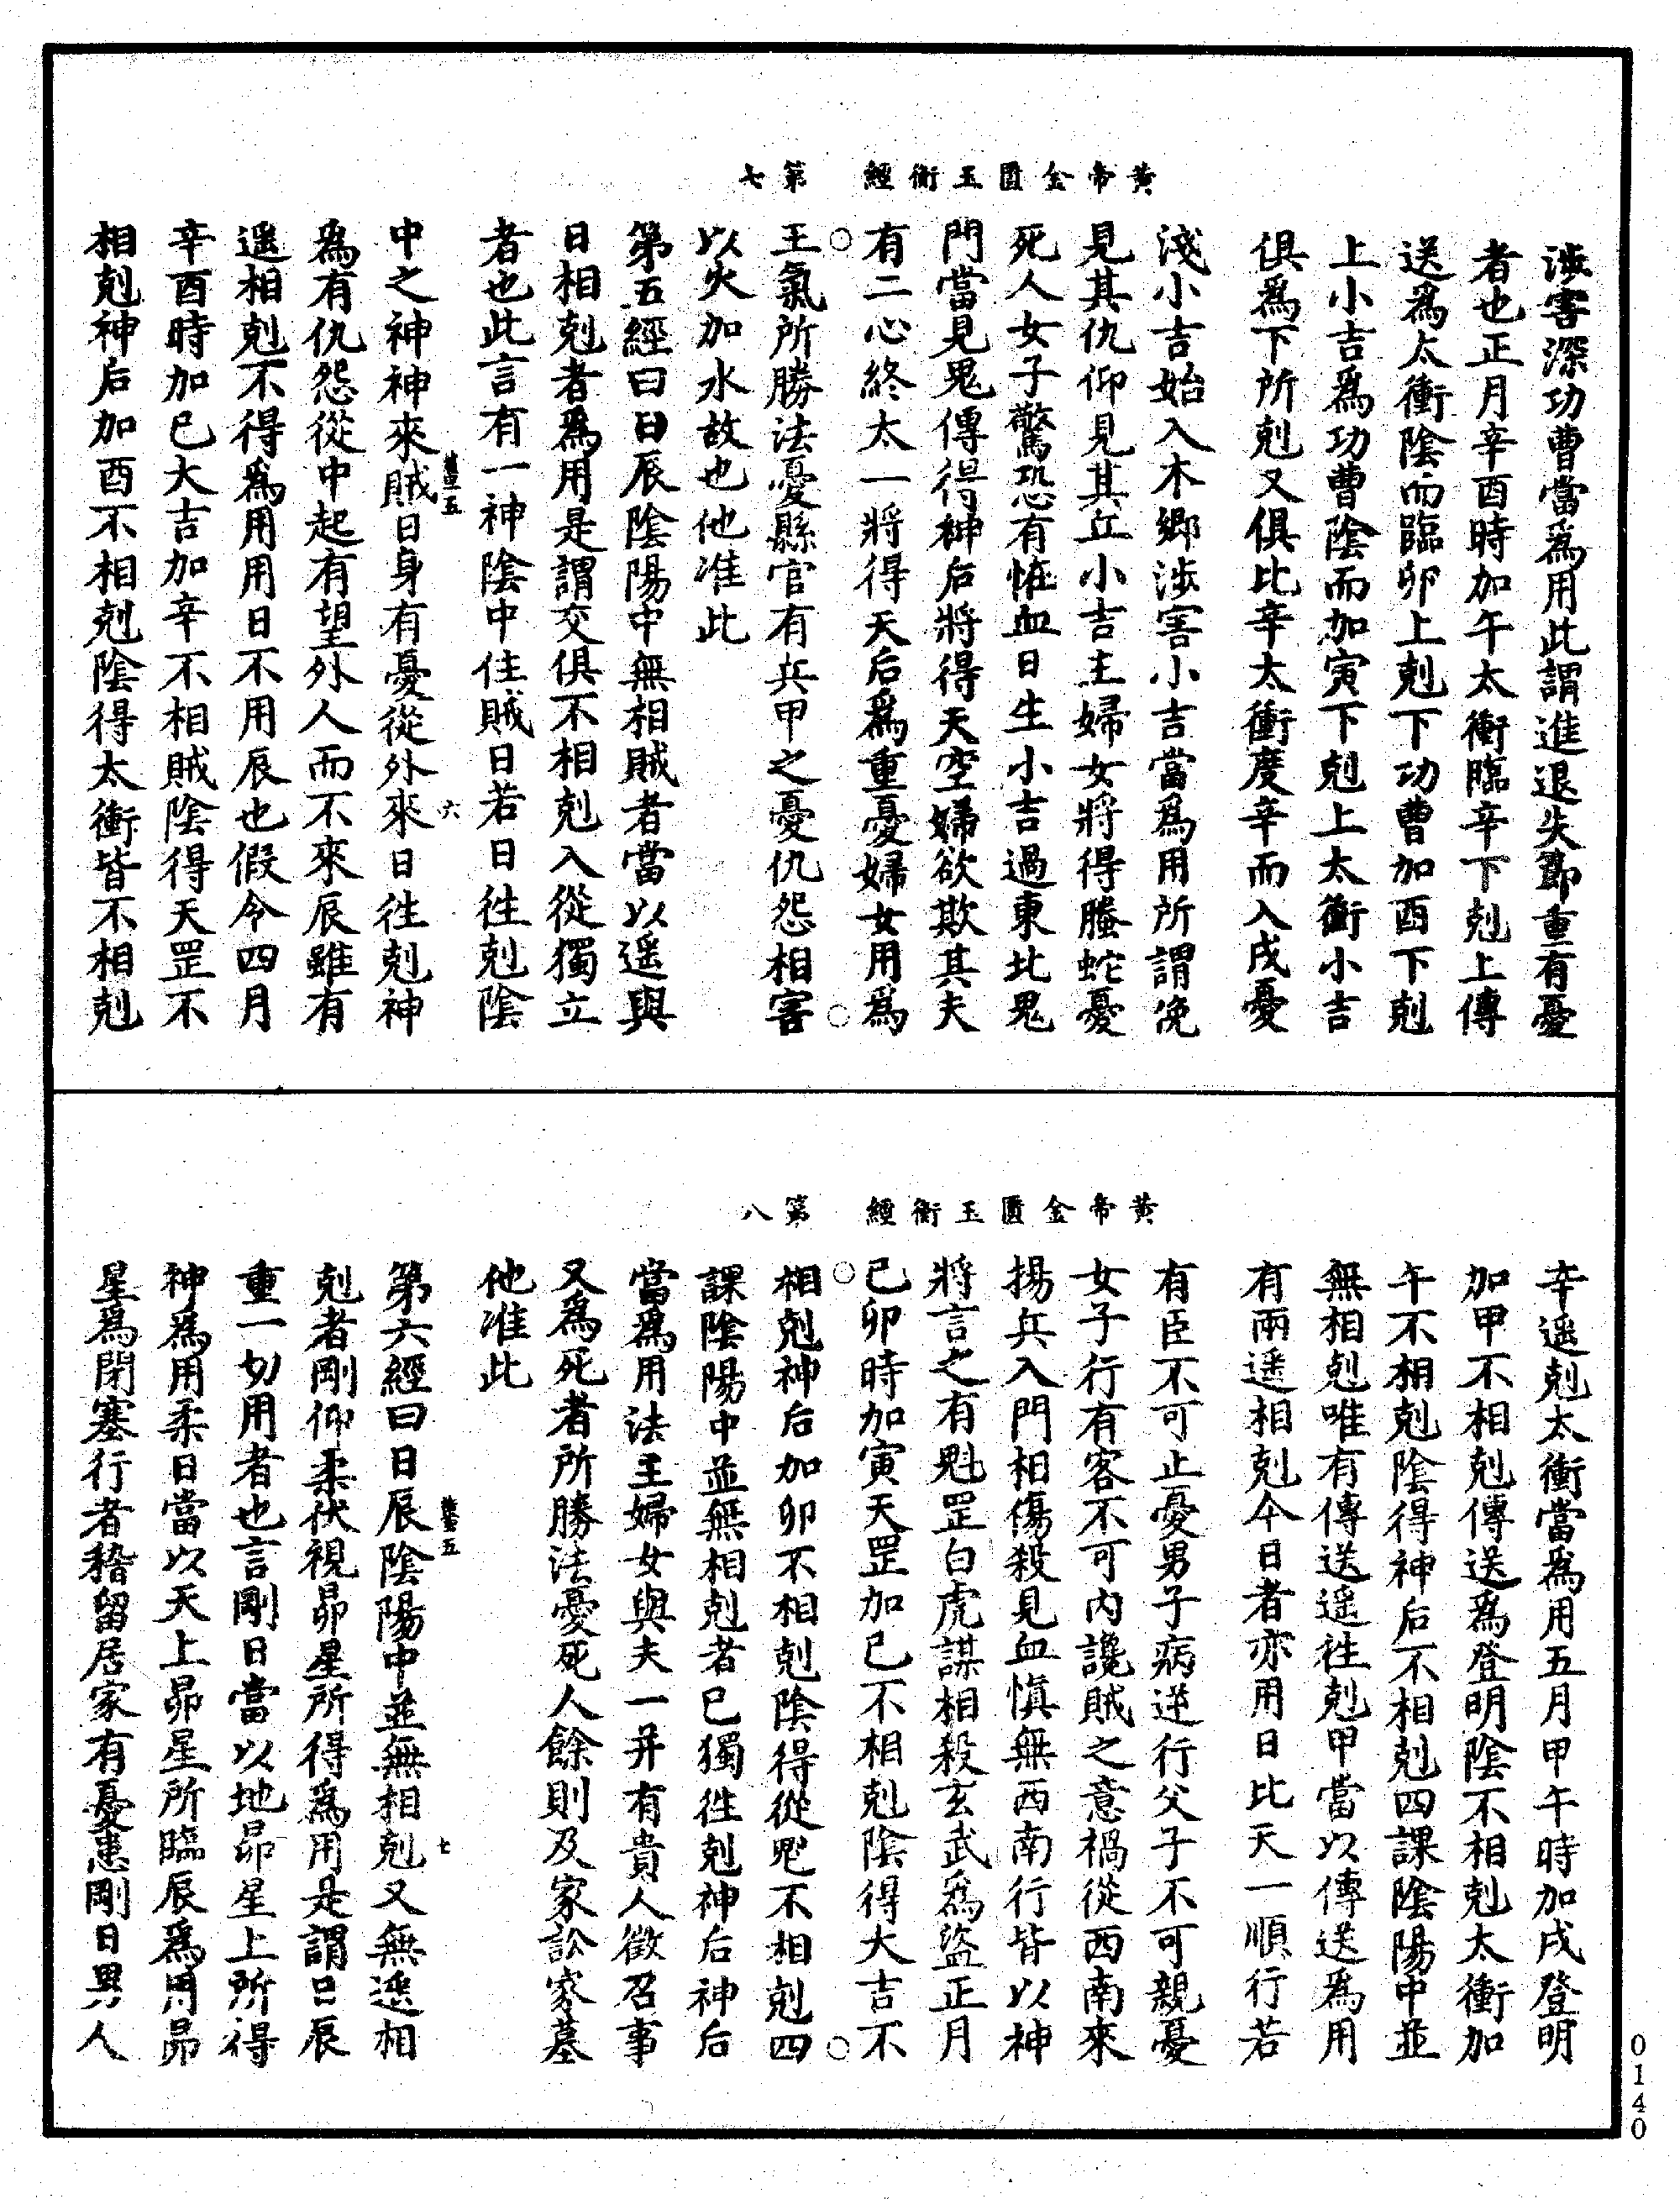 黃帝金匱玉衡經　第七
涉害深功曹當爲用此謂進退失節重有憂
者也正月辛酉時加午太衝臨辛下剋上傳
送爲太衝陰而臨卯上剋下功曹加酉下剋
上小吉爲功曹陰而加寅下剋上太衝小吉
俱爲下所剋又俱比辛太衝度辛而入戌憂
淺小吉始入木鄉涉害小吉當爲用所謂俛
見其仇仰見其丘小吉主婦女將得螣蛇憂
死人女子驚恐有惟血日生小吉過東北鬼
門當見鬼傳得神后將得天空婦欲欺其夫
有二心終太一將得天后爲重憂婦女用爲
王氣所勝法憂縣官有兵甲之憂仇怨相害
以火加水故也他准此
第五經曰日辰陰陽中無相賊者當以遥與
日相剋者爲用是謂交俱不相剋入從獨立
者也此言有一神陰中住賊日若日往剋陰
中之神神來賊日身有憂從外來日往剋神
六
爲有仇怨從中起有望外人而不來辰雖有
遥相剋不得爲用用日不用辰也假令四月
辛酉時加巳大吉加辛不相賊陰得天罡不
相剋神后加酉不相剋陰得太衝皆不相剋
黃帝金匱玉衡經　第八
辛遥剋太衝當爲用五月甲午時加戌登明
加甲不相剋傳送爲登明陰不相剋太衝加
午不相剋陰得神后不相剋四課陰陽中並
無相剋唯有傳送遥往剋甲當以傳送爲用
有兩遥相剋今日者亦用日比天一順行若
有臣不可止憂男子病逆行父子不可親憂
女子行有客不可內讒賊之意禍從西南來
揚兵入門相傷殺見血慎無西南行皆以神
將言之有魁罡白虎謀相殺玄武爲盜正月
己卯時加寅天罡加己不相剋陰得大吉不
相剋神后加卯不相剋陰得從魁不相剋四
課陰陽中並無相剋者已獨往剋神后神后
當爲用法主婦女與夫一并有貴人徵召事
又爲死者所勝法憂死人餘則及家訟冢墓
他准此
第六經曰日辰陰陽中並無相剋又無遥相
七
剋者剛仰柔伏視昴星所得爲用是謂日辰
重一切用者也言剛日當以地昴星上所得
神爲用柔日當以天上昴星所臨辰爲用昴
星爲閉塞行者稽留居家有憂患剛日男人
0140